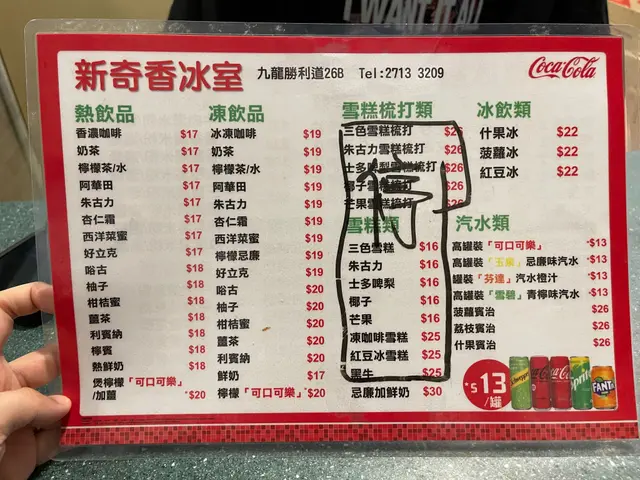 I WANT IT ALL
新奇香冰室 九龍勝利道26B Tel:2713 3209
Coca-Cola
熱飲品
香濃咖啡 $17
奶茶 $17
檸檬茶/水 $17
阿華田 $17
朱古力 $17
杏仁霜 $17
西洋菜蜜 $17
好立克 $17
啗古 $18
柚子 $18
柑桔蜜 $18
薑茶 $18
利賓納 $18
檸賓 $18
熱鮮奶 $18
煲檸檬「可口可樂」
/加薑 $20
凍飲品
冰凍咖啡 $19
奶茶 $19
檸檬茶/水 $19
阿華田 $19
朱古力 $19
杏仁霜 $19
西洋菜蜜 $19
檸檬忌廉 $19
好立克 $19
啗古 $20
柚子 $20
柑桔蜜 $20
薑茶 $20
利賓納 $20
鮮奶 $17
檸檬「可口可樂」 $20
雪糕梳打類
三色雪糕梳打 $26
朱古力雪糕梳打 $26
士多啤梨雪糕梳打 $26
椰子雪糕梳打 $26
芒果雪糕梳打 $26
停
雪糕類
三色雪糕 $16
朱古力 $16
士多啤梨 $16
椰子 $16
芒果 $16
凍咖啡雪糕 $25
紅豆冰雪糕 $25
黑牛 $25
忌廉加鮮奶 $30
冰飲類
什果冰 $22
菠蘿冰 $22
紅豆冰 $22
汽水類
高罐裝「可口可樂」 $13
高罐裝「玉泉」忌廉味汽水 $13
罐裝「芬達」汽水橙汁 $13
高罐裝「雪碧」青檸味汽水 $13
菠蘿賓治 $26
荔枝賓治 $26
什果賓治 $26
$13
/罐
Coca-Cola
Sprite
FANTA